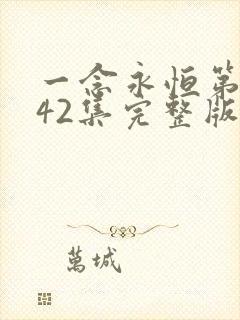 一念永恒第
42集完整版
萬城